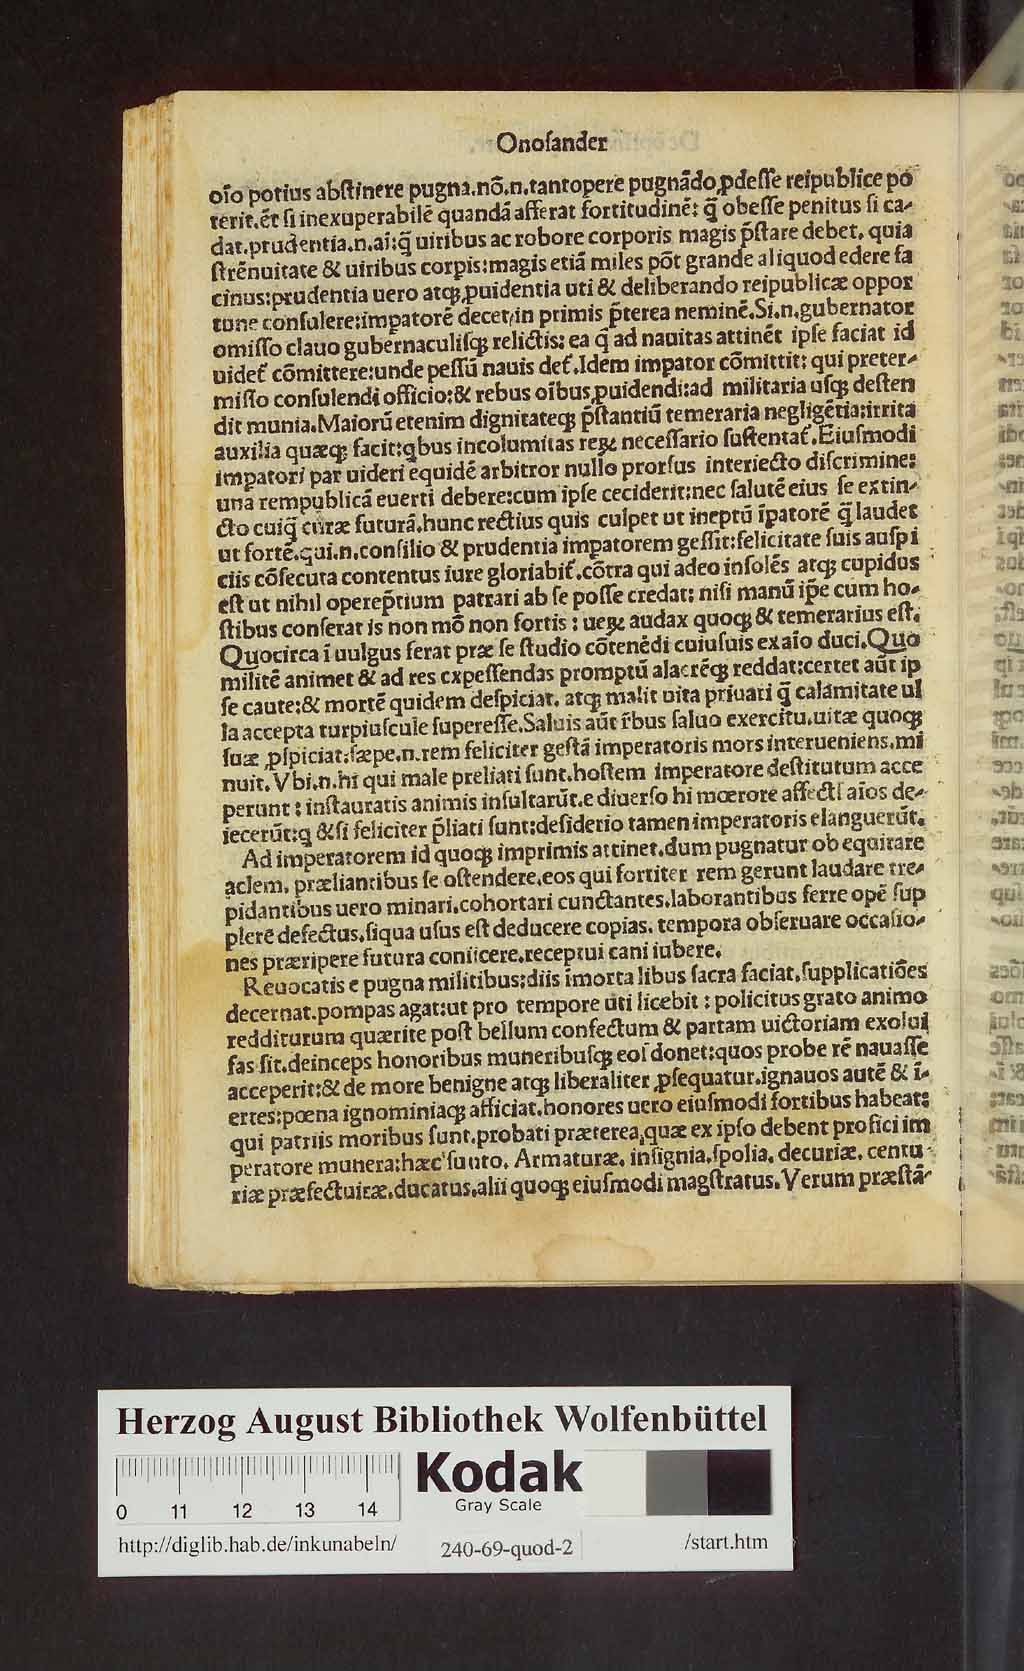 Onoſander
oīo potius abſtinere pugna.nō.n.tantopere pugnādo ꝓdeſſe reipublice po
terit.ēt ſi inexuperabilē quandā afferat fortitudinē: q̄ obeſſe penitus ſi ca-
dat.prudentia.n.ai:q̄ uiribus ac robore corporis magis p̄ſtare debet, quia
ſtrēnuitate & uiribus corpis:magis etiā miles pōt grande aliquod edere fa
cinus:prudentia uero atqꝫ ꝓuidentia uti & deliberando reipublicæ oppor
tune conſulere:impatorē decet:in primis p̄terea neminē.Si.n.gubernator
omiſſo clauo gubernaculiſqꝫ relictis: ea q̄ ad nauitas attinēt ipſe faciat id
uidet̄ cōmittere:unde peſſū nauis det̄.Idem impator cōmittit: qui preter-
miſſo conſulendi officio:& rebus oībus ꝓuidendi:ad militaria uſqꝫ deſten
dit munia.Maiorū etenim dignitateqꝫ p̄ſtantiū temeraria negligētia:irrita
auxilia quæqꝫ facit:qbus incolumitas reꝝ neceſſario ſuſtentat̄.Eiuſmodi
impatori par uideri equidē arbitror nullo prorſus interiecto diſcrimine:
una rempublicā euerti debere:cum ipſe ceciderit:nec ſalutē eius ſe extin-
cto cuiq̄ curæ futurā.hunc rectius quis culpet ut ineptū īpatorē q̄ laudet
ut fortē.qui.n.conſilio & prudentia impatorem geſſit:felicitate ſuis auſpi
ciis cōſecuta contentus iure gloriabit̄.cōtra qui adeo inſolēs atqꝫ cupidus
eſt ut nihil operep̄tium patrari ab ſe poſſe credat: niſi manū ip̄e cum ho-
ſtibus conſerat is non mō non fortis : ueꝝ audax quoqꝫ & temerarius eſt.
Quocirca ī uulgus ferat præ ſe ſtudio cōtenēdi cuiuſuis ex aīo duci.Quo
militē animet & ad res expeſſendas promptū alacrēqꝫ reddat:certet aūt ip
ſe caute:& mortē quidem deſpiciat, atqꝫ malit uita priuari q̄ calamitate ul
la accepta turpiuſcule ſupereſſe.Saluis aūt r̄bus ſaluo exercitu.uitæ quoqꝫ
ſuæ ꝓſpiciat:ſæpe.n.rem feliciter geſtā imperatoris mors interueniens.mi
nuit. Vbi.n.hi qui male preliati ſunt.hoſtem imperatore deſtitutum acce
perunt : inſtauratis animis inſultarūt.e diuerſo hi mœrore affecti aīos de-
iecerūt:q &ſi feliciter p̄liati ſunt:deſiderio tamen imperatoris elanguerūt.
Ad imperatorem id quoqꝫ imprimis attinet.dum pugnatur ob equitare
aciem, præliantibus ſe oſtendere.eos qui fortiter rem gerunt laudare tre-
pidantibus uero minari.cohortari cunctantes.laborantibus ferre opē ſup
plere defectus.ſiqua uſus eſt deducere copias, tempora obſeruare occaſio-
nes præripere futura coniicere.receptui cani iubere.
Reuocatis e pugna militibus:diis īmorta libus ſacra faciat.ſupplicatiōes
decernat.pompas agat:ut pro tempore uti licebit : policitus grato animo
redditurum quærite poſt bellum confectum & partam uictoriam exolui
fas ſit.deinceps honoribus muneribuſqꝫ eoſ donet:quos probe rē nauaſſe
acceperit:& de more benigne atqꝫ liberaliter ꝓſequatur.ignauos autē & ī-
ertes:pœna ignominiaqꝫ afficiat.honores uero eiuſmodi fortibus habeat:
qui patriis moribus ſunt.probati præterea,quæ ex ipſo debent profici im
peratore munera:hæc ſunto. Armaturæ, inſignia,ſpolia, decuriæ, centu-
riæ præfectuitæ.ducatus.alii quoqꝫ eiuſmodi magſtratus. Verum præſtā-
Herzog August Bibliothek Wolfenbüttel
0 11 12 13 14
Kodak
Gray Scale
http://diglib.hab.de/inkunabeln/ 240-69-quod-2 /start.htm